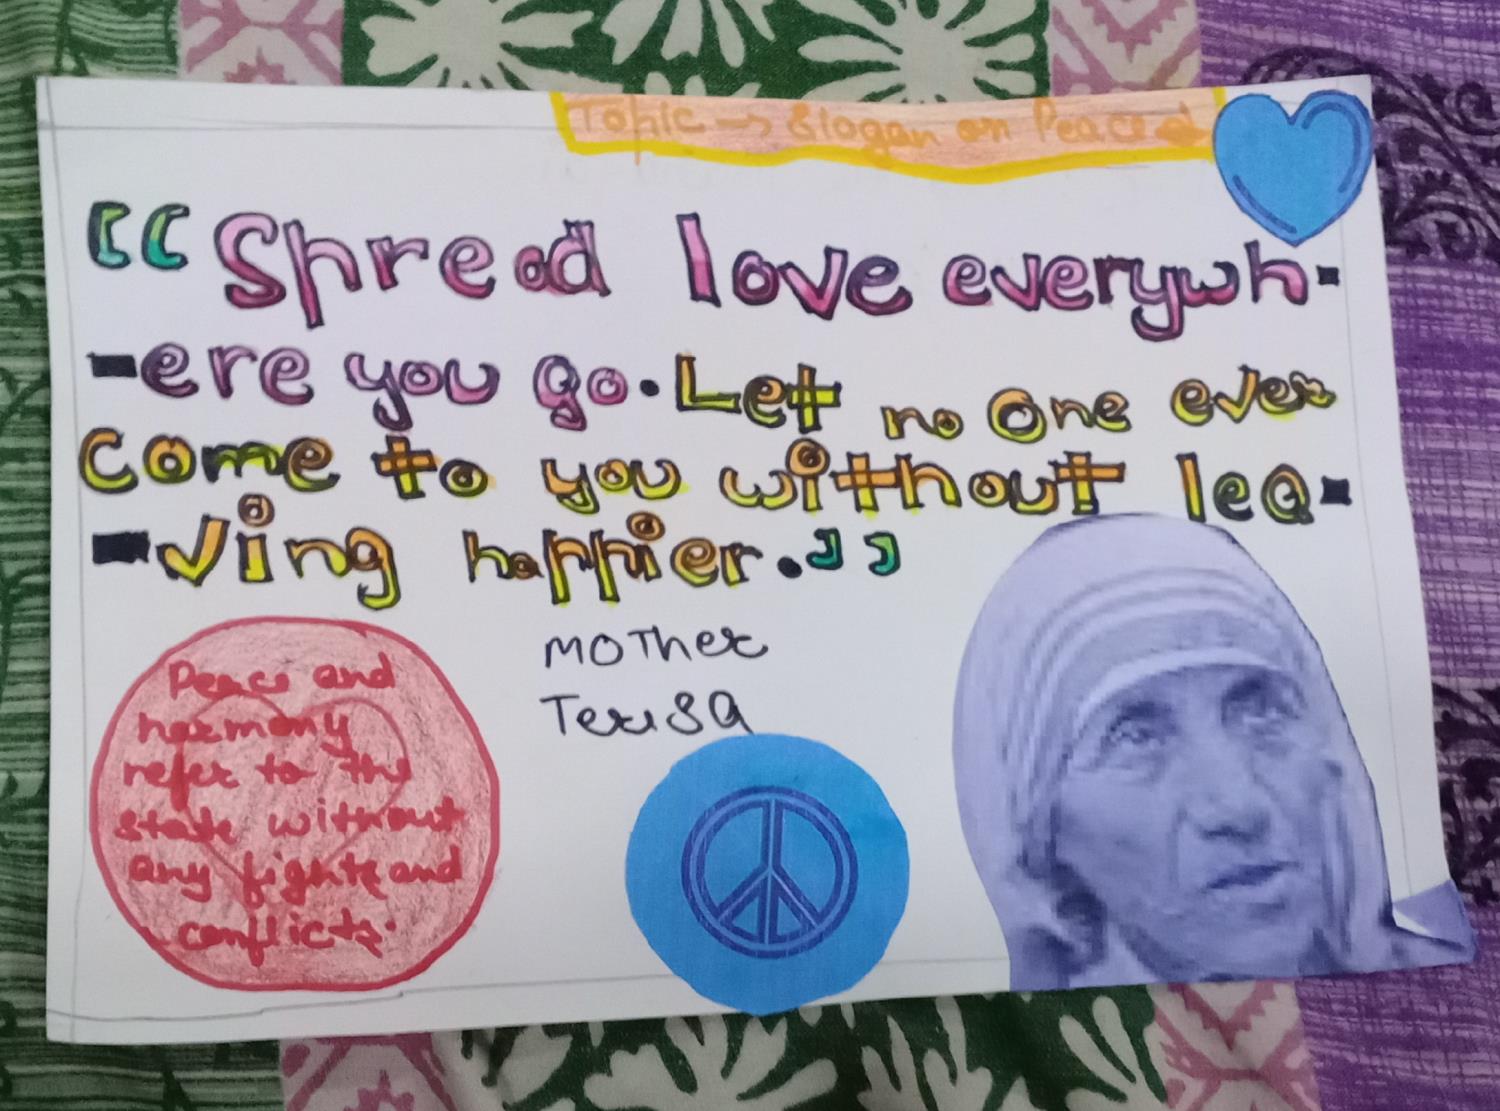 Topic → Slogan on Peace
“Spread love everywh-
-ere you go. Let no one ever
come to you without lea-
-ving happier.”
MOTher
Terisa
Peace and
harmony
refer to the
state without
any fights and
conflicts.